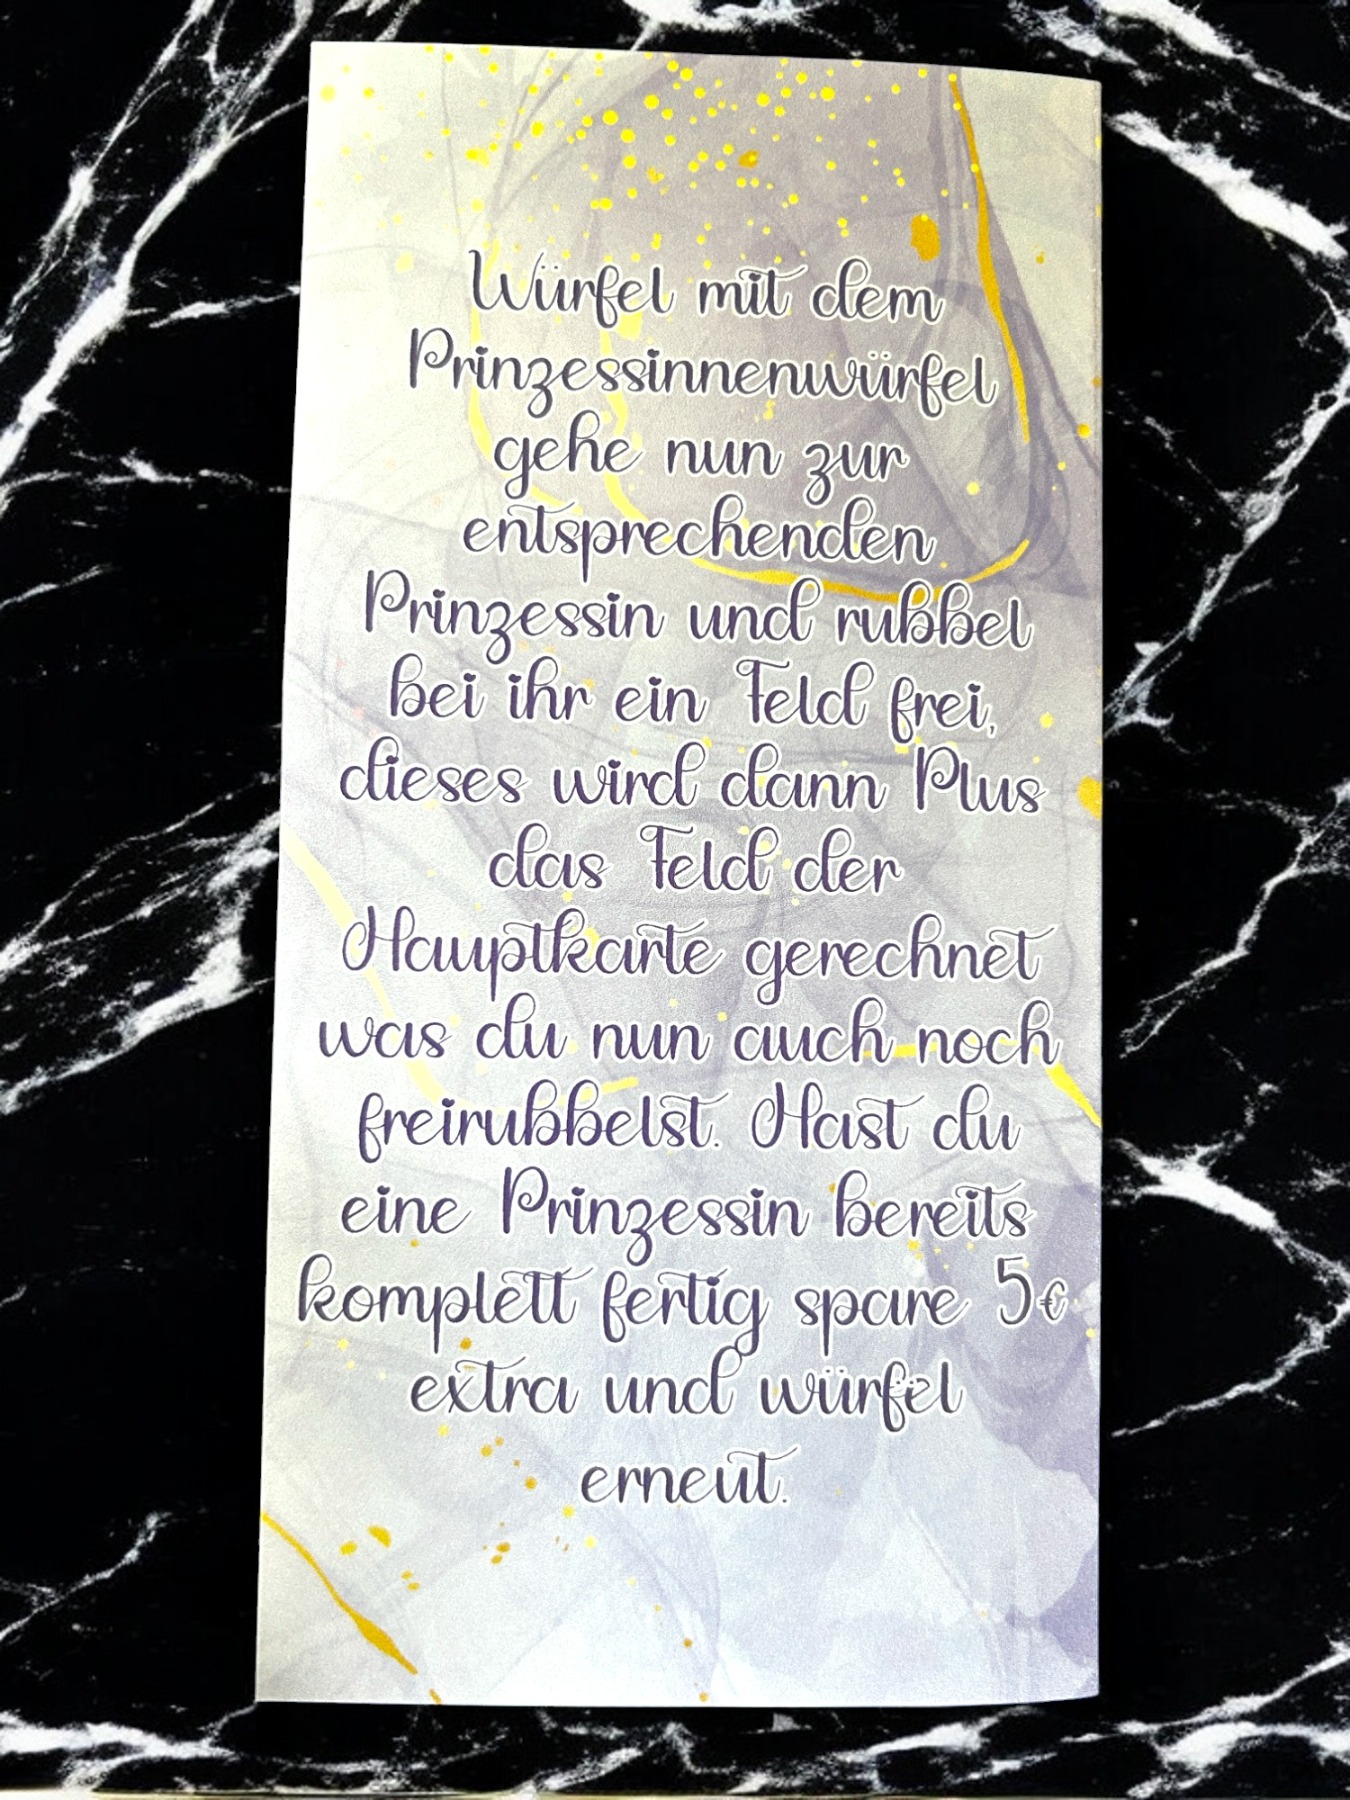 Würfel mit dem
Prinzessinnenwürfel
gehe nun zur
entsprechenden
Prinzessin und rubbel
bei ihr ein Feld frei,
dieses wird dann Plus
das Feld der
Hauptkarte gerechnet
was du nun auch noch
freirubbelst. Hast du
eine Prinzessin bereits
komplett fertig spare 5€
extra und würfel
erneut.